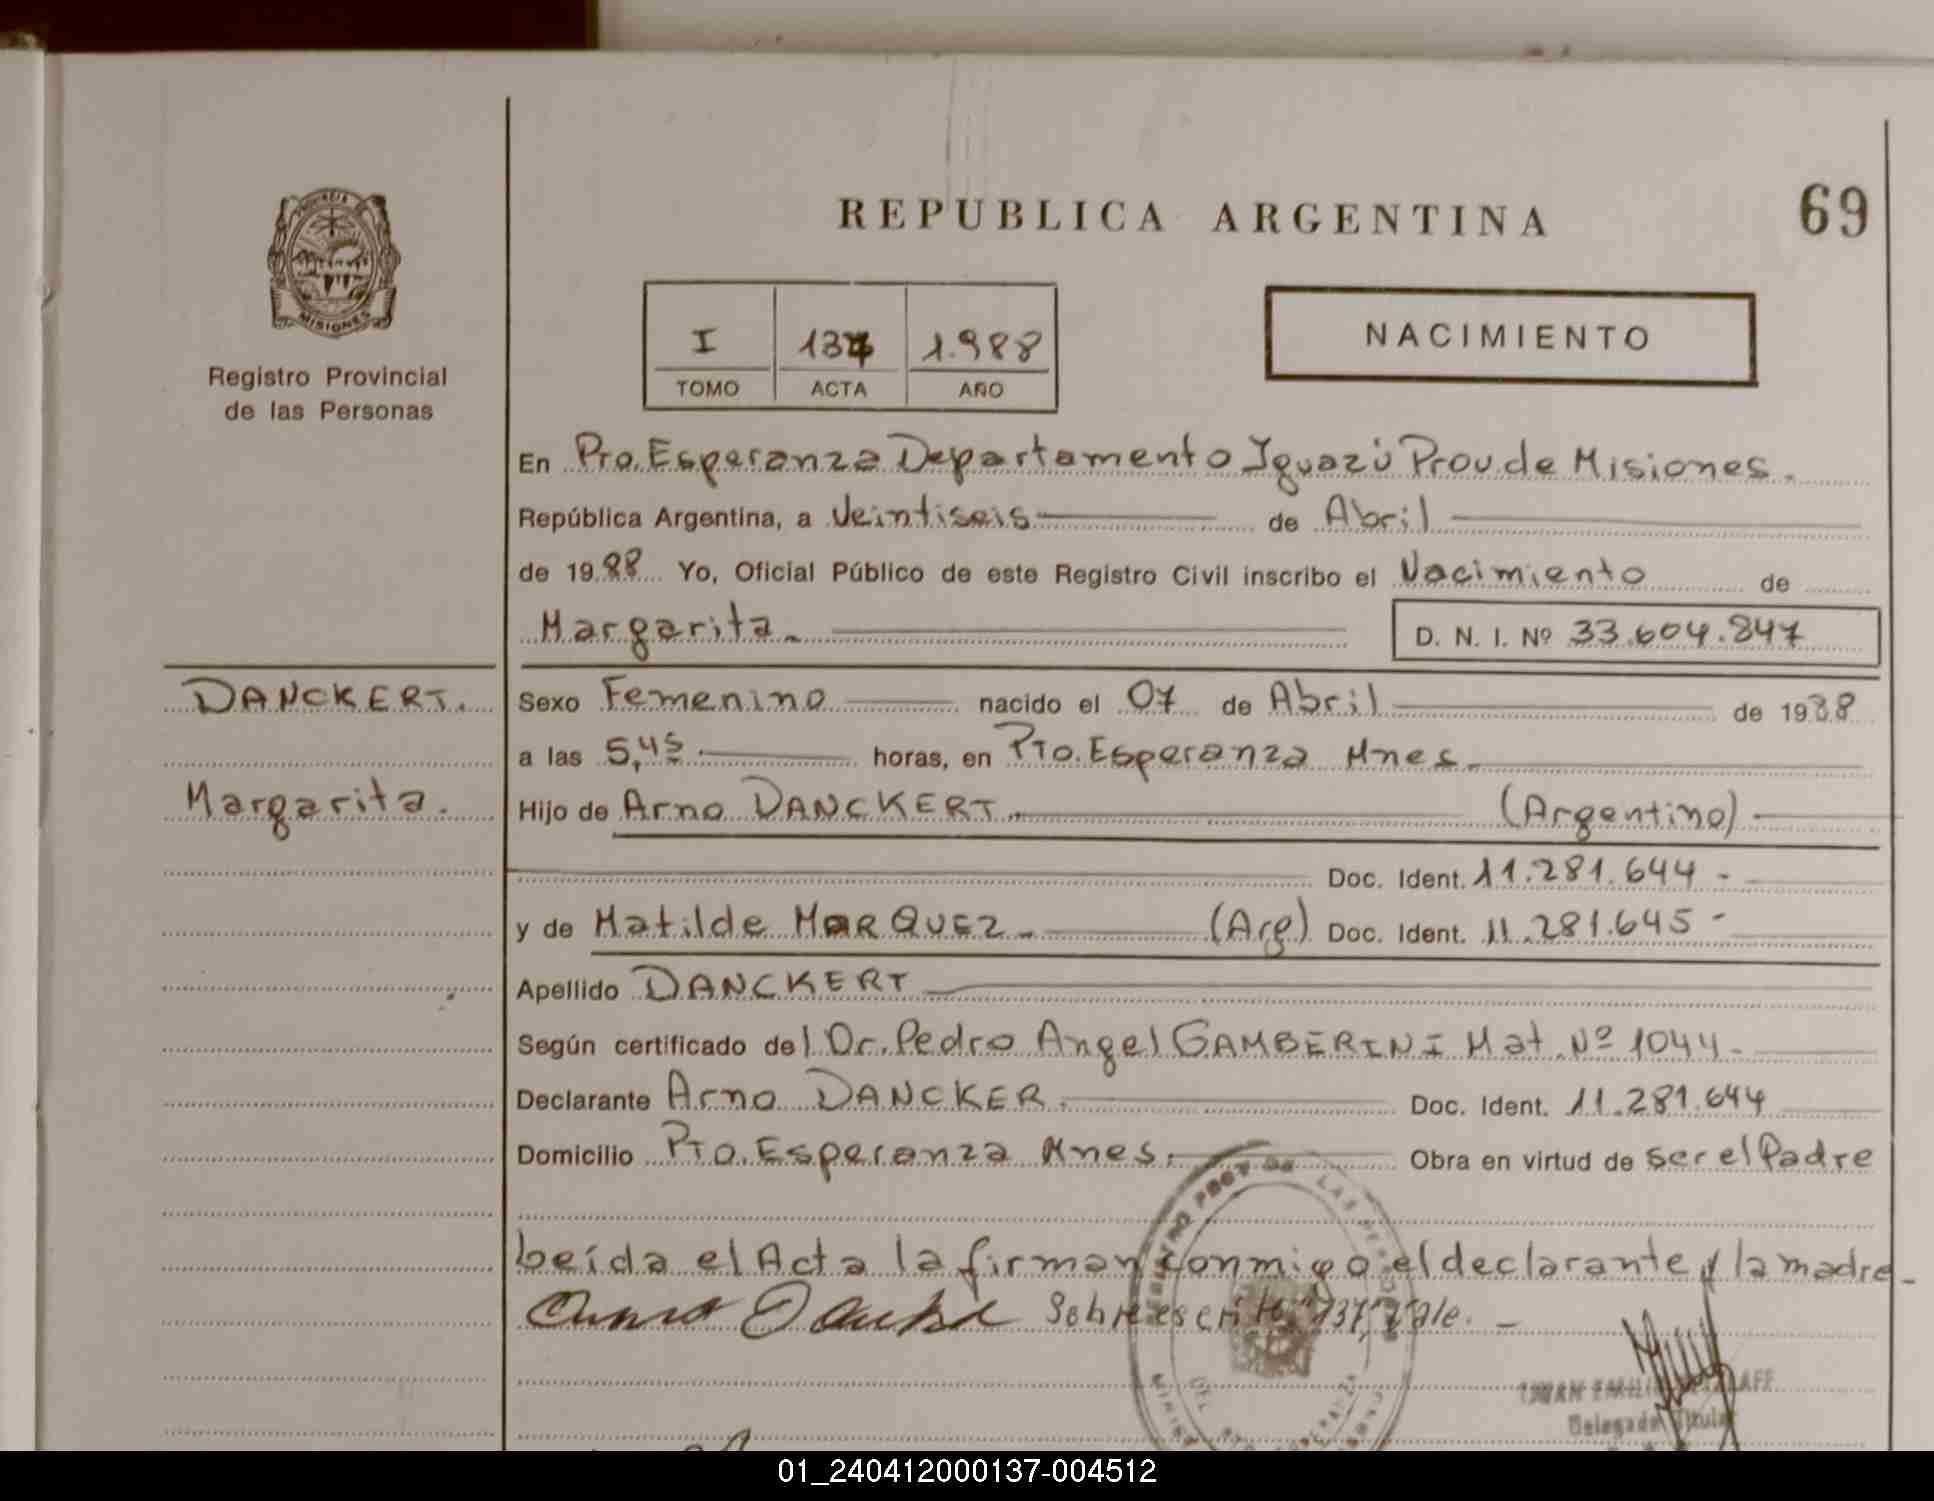 REPUBLICA ARGENTINA
69
PROVINCIA DE
MISIONES
Registro Provincial
de las Personas
I 137 1.988
TOMO ACTA AÑO
NACIMIENTO
En Pto. Esperanza Departamento Iguazú Prov. de Misiones.
República Argentina, a Veintiseis de Abril
de 1988 Yo, Oficial Público de este Registro Civil inscribo el Nacimiento de
Margarita.
D. N. I. Nº 33.604.847
DANCKERT.
Margarita.
Sexo Femenino nacido el 07 de Abril de 1988
a las 5,45 horas, en Pto. Esperanza Mnes.
Hijo de Arno DANCKERT. (Argentino)
Doc. Ident. 11.281.644 -
y de Matilde MARQUEZ. (Arg) Doc. Ident. 11.281.645 -
Apellido DANCKERT
Según certificado del Dr. Pedro Angel GAMBERINI Mat. Nº 1044.
Declarante Arno DANCKER. Doc. Ident. 11.281.644
Domicilio Pto. Esperanza Mnes. Obra en virtud de ser el Padre
Leída el Acta la firman conmigo el declarante y la madre.
Sobreescrito "137" Vale. -
REGISTRO PROV. DE LAS PERSONAS
Delegado Titular
01_240412000137-004512